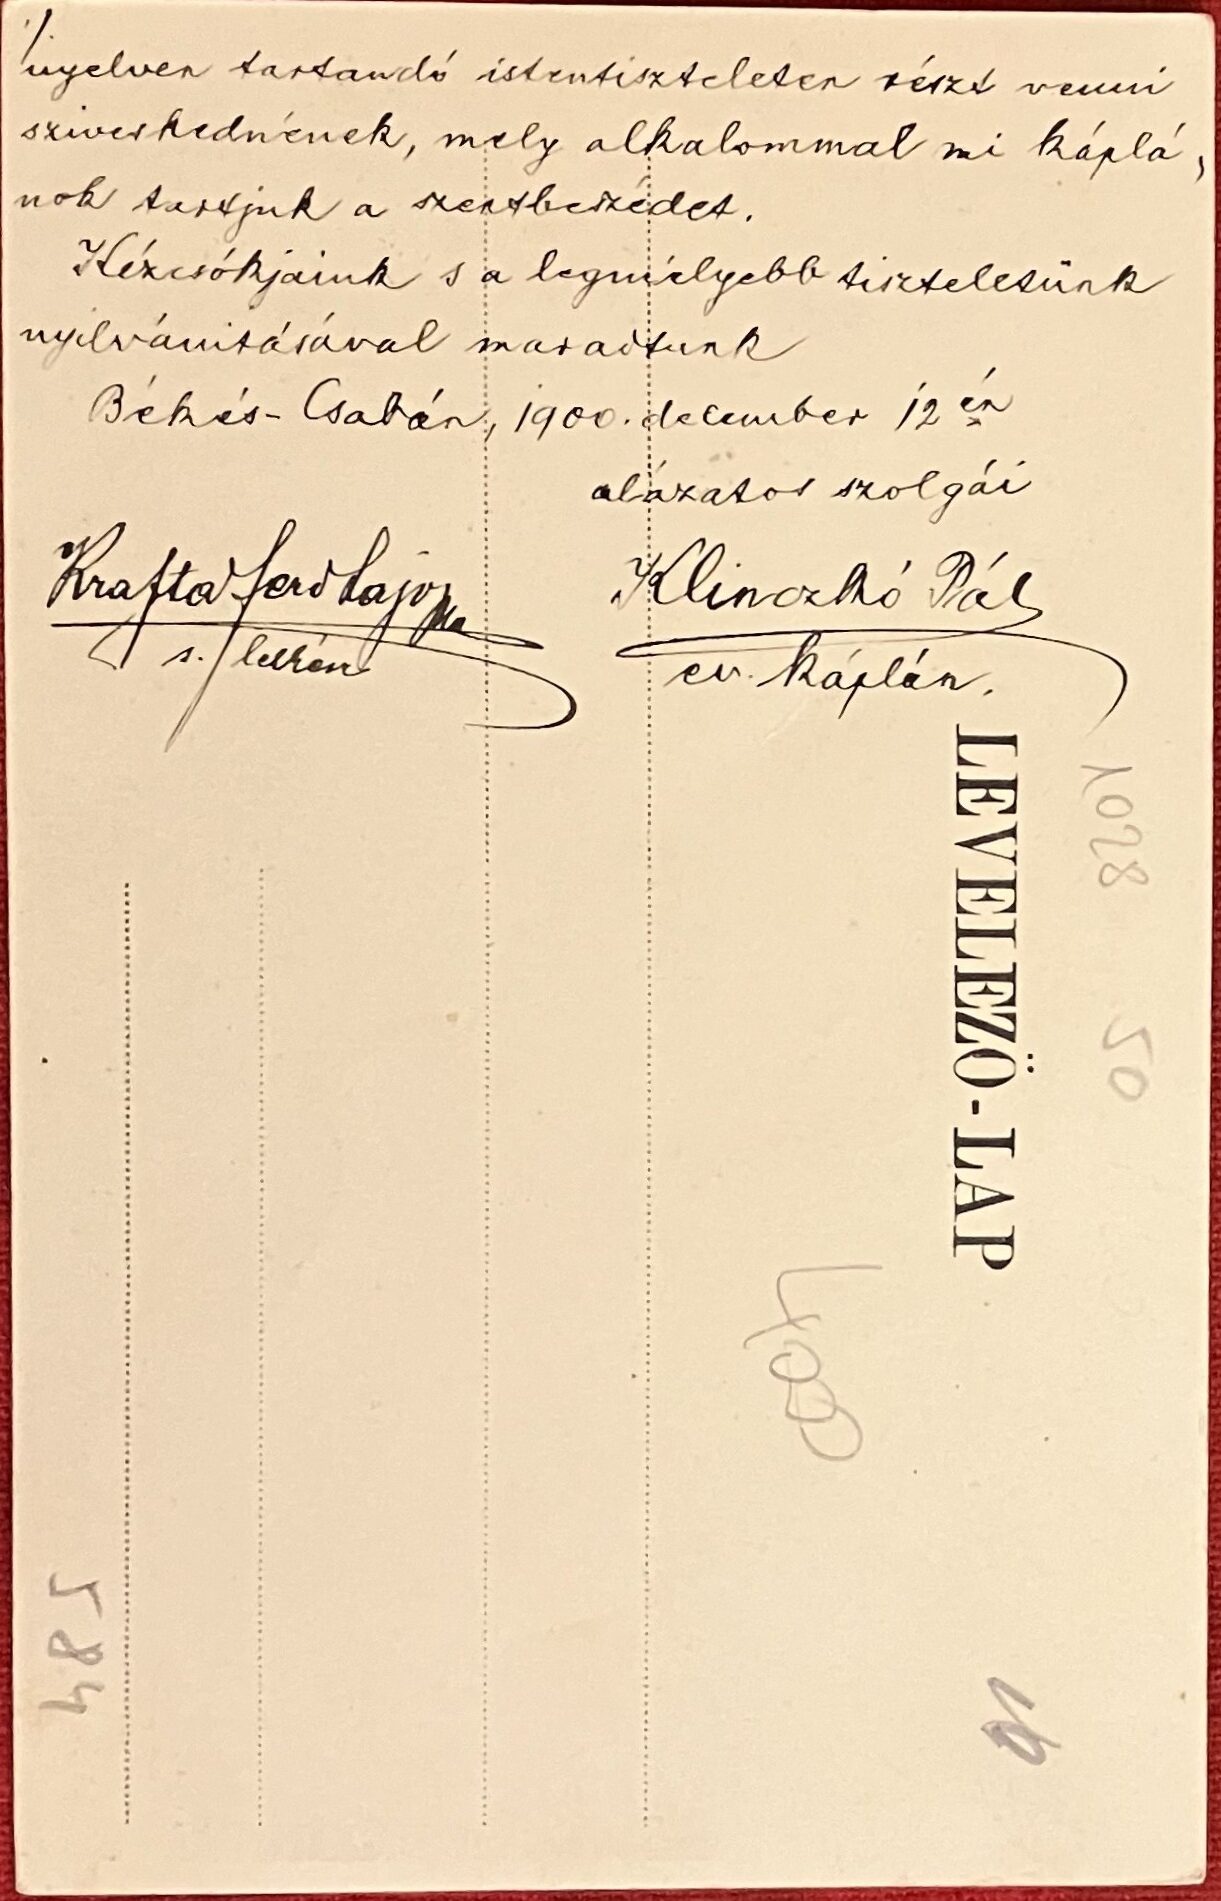 ·/.
nyelven tartandó istentiszteleten részt venni
sziveskednének, mely alkalommal mi káplá,
nok tartjuk a szentbeszédet.
Kézcsókjaink s a legmélyebb tiszteletünk
nyilvánitásával maradtunk
Békés-Csabán, 1900. december 12én
alázatos szolgái
Klinczkó Pál
ev. káplán.
s. lelkész
LEVELEZŐ-LAP
1028
50
485